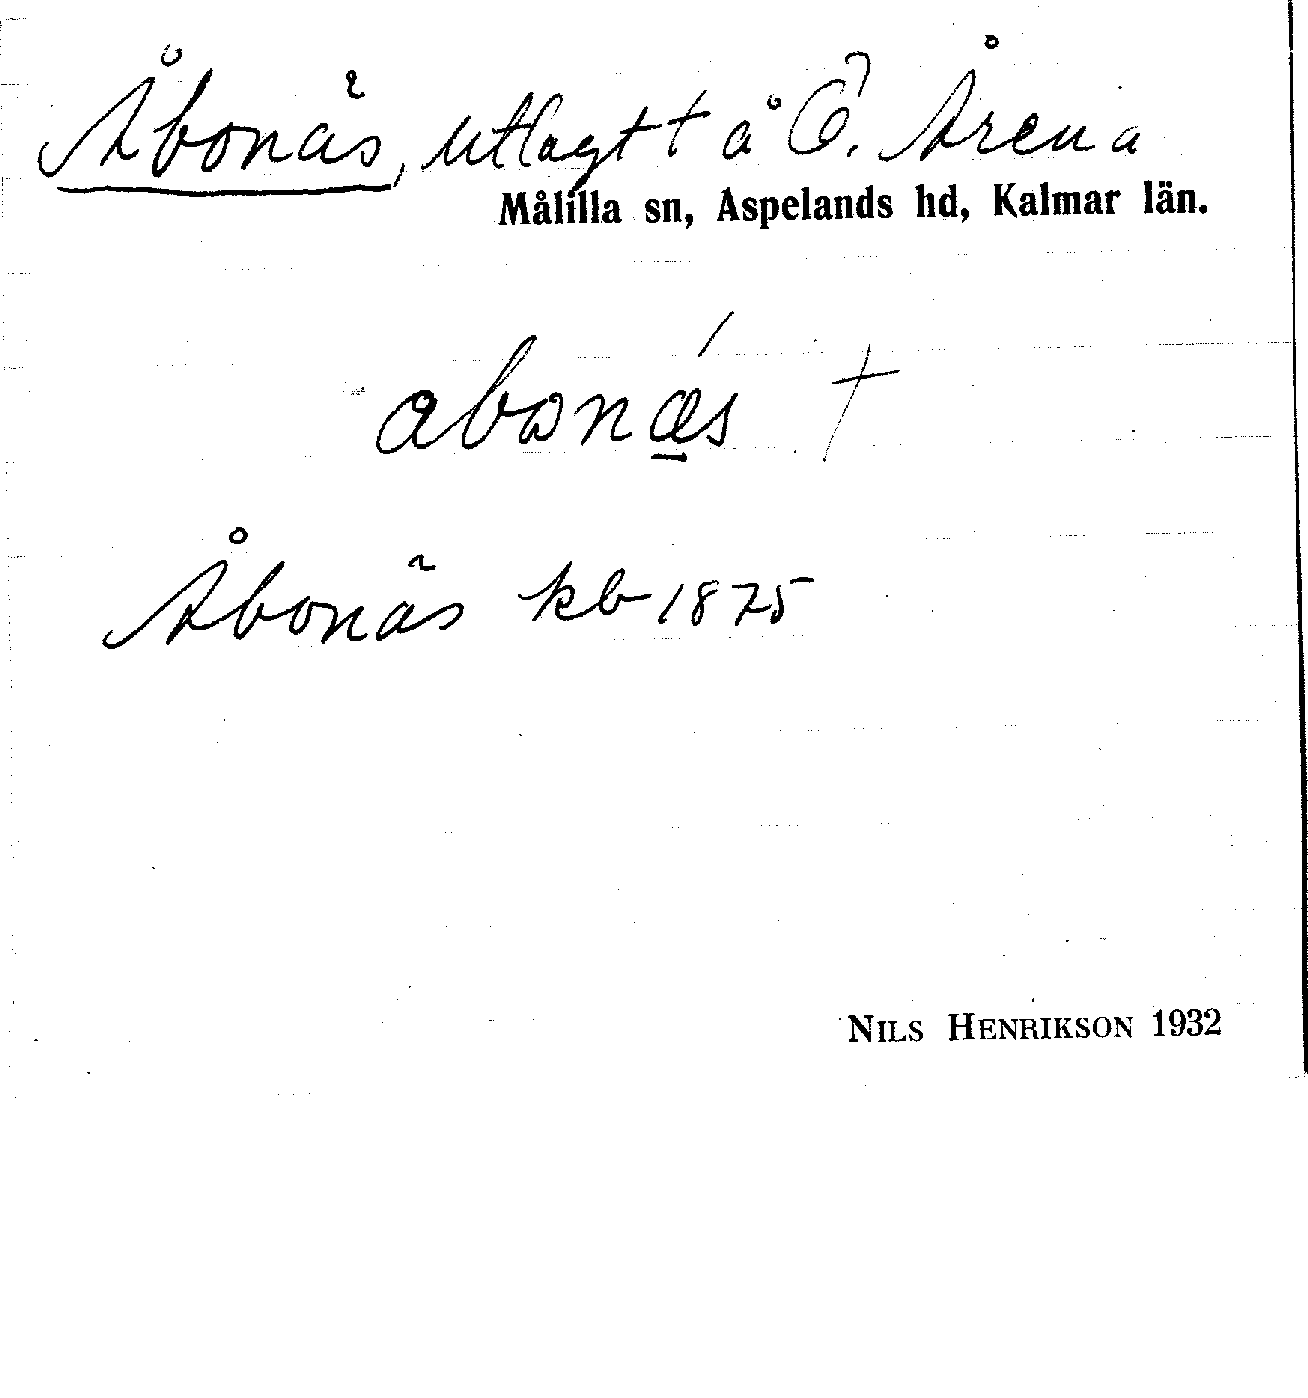 Åbonäs, utlagt † å Ö. Årena
Målilla sn, Aspelands hd, Kalmar län.
abonǽ̱s †
Åbonäs kb 1875
NILS HENRIKSON 1932